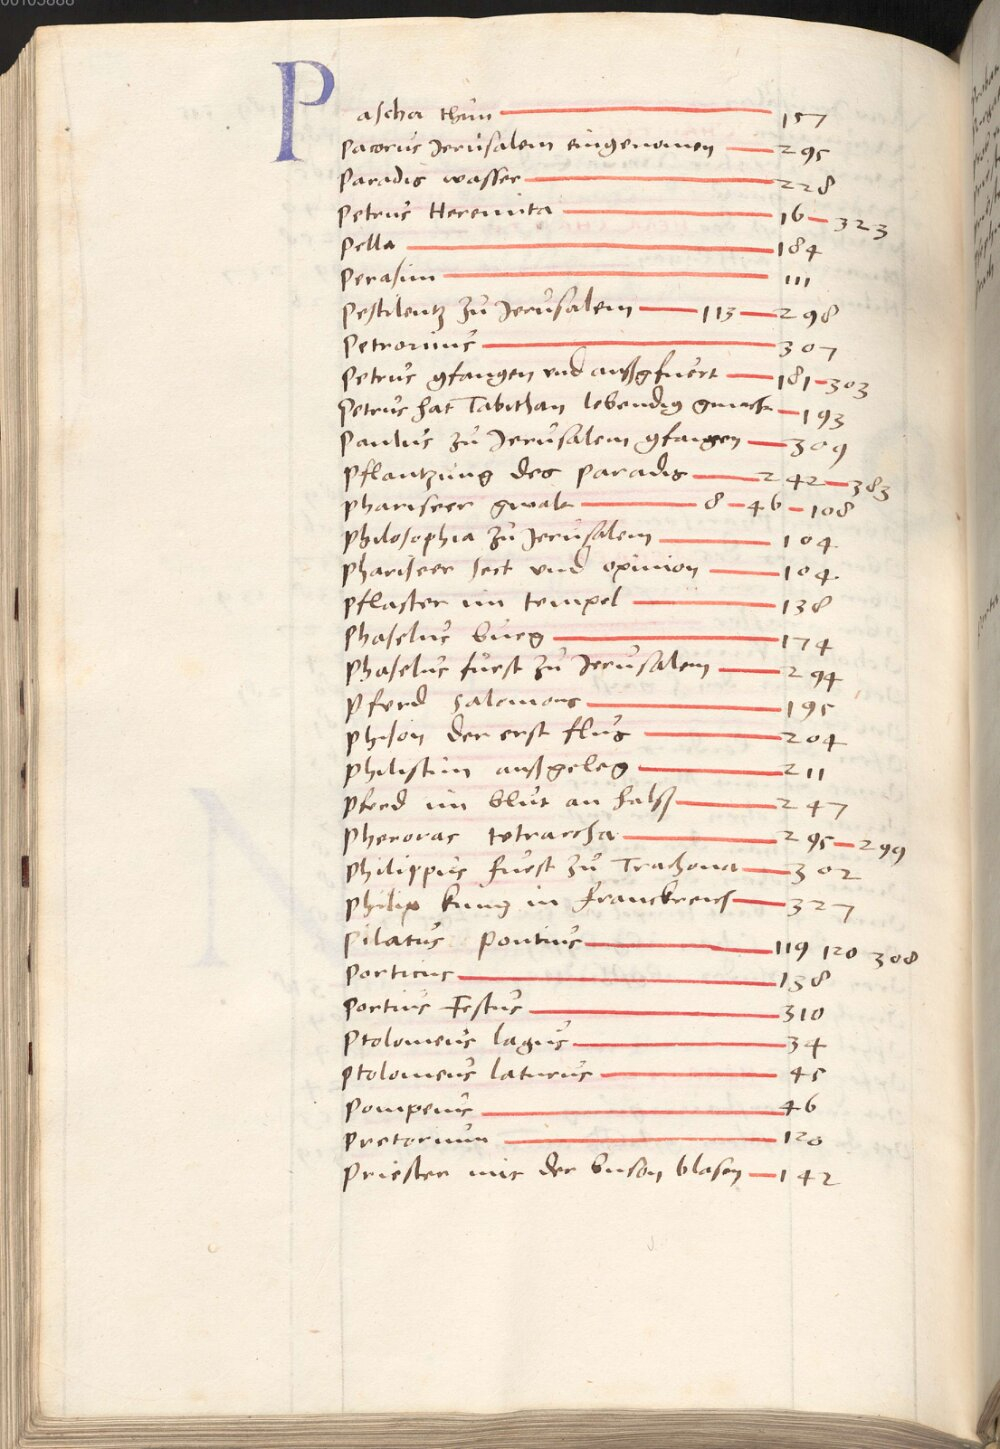 00103888
Pascha thun 157
Pacorus Jerusalem eingenomen 295
Paradis wasser 228
Petrus Heremita 16 323
Pella 184
Perasim 111
Pestilentz zu Jerusalem 113 298
Petronius 307
Petrus gfangen vnd außgfuert 181 303
Petrus hat Tabithan lebendig gmacht 193
Paulus zu Jerusalem gfangen 309
Pflantzung des Paradis 242 383
Phariseer gwalt 8 46 108
Philosophia zu Jerusalem 104
Phariseer sect vnd opinion 104
Pflaster im tempel 138
Phaselus burg 174
Phaselus furst zu Jerusalem 294
Pferd Salomons 195
Phison der erst flus 204
Philistim außgeleg 211
Pferd im blut an halß 247
Pheroras tetrarcha 295 299
Philippus furst zu Trachona 302
Philip kunig in franckreich 327
Pilatus Pontius 119 120 308
Porticus 138
Portius Festus 310
Ptolomeus lagus 34
Ptolomeus laturus 45
Pompeius 46
Pretorium 120
Priester mit der buson blasen 142